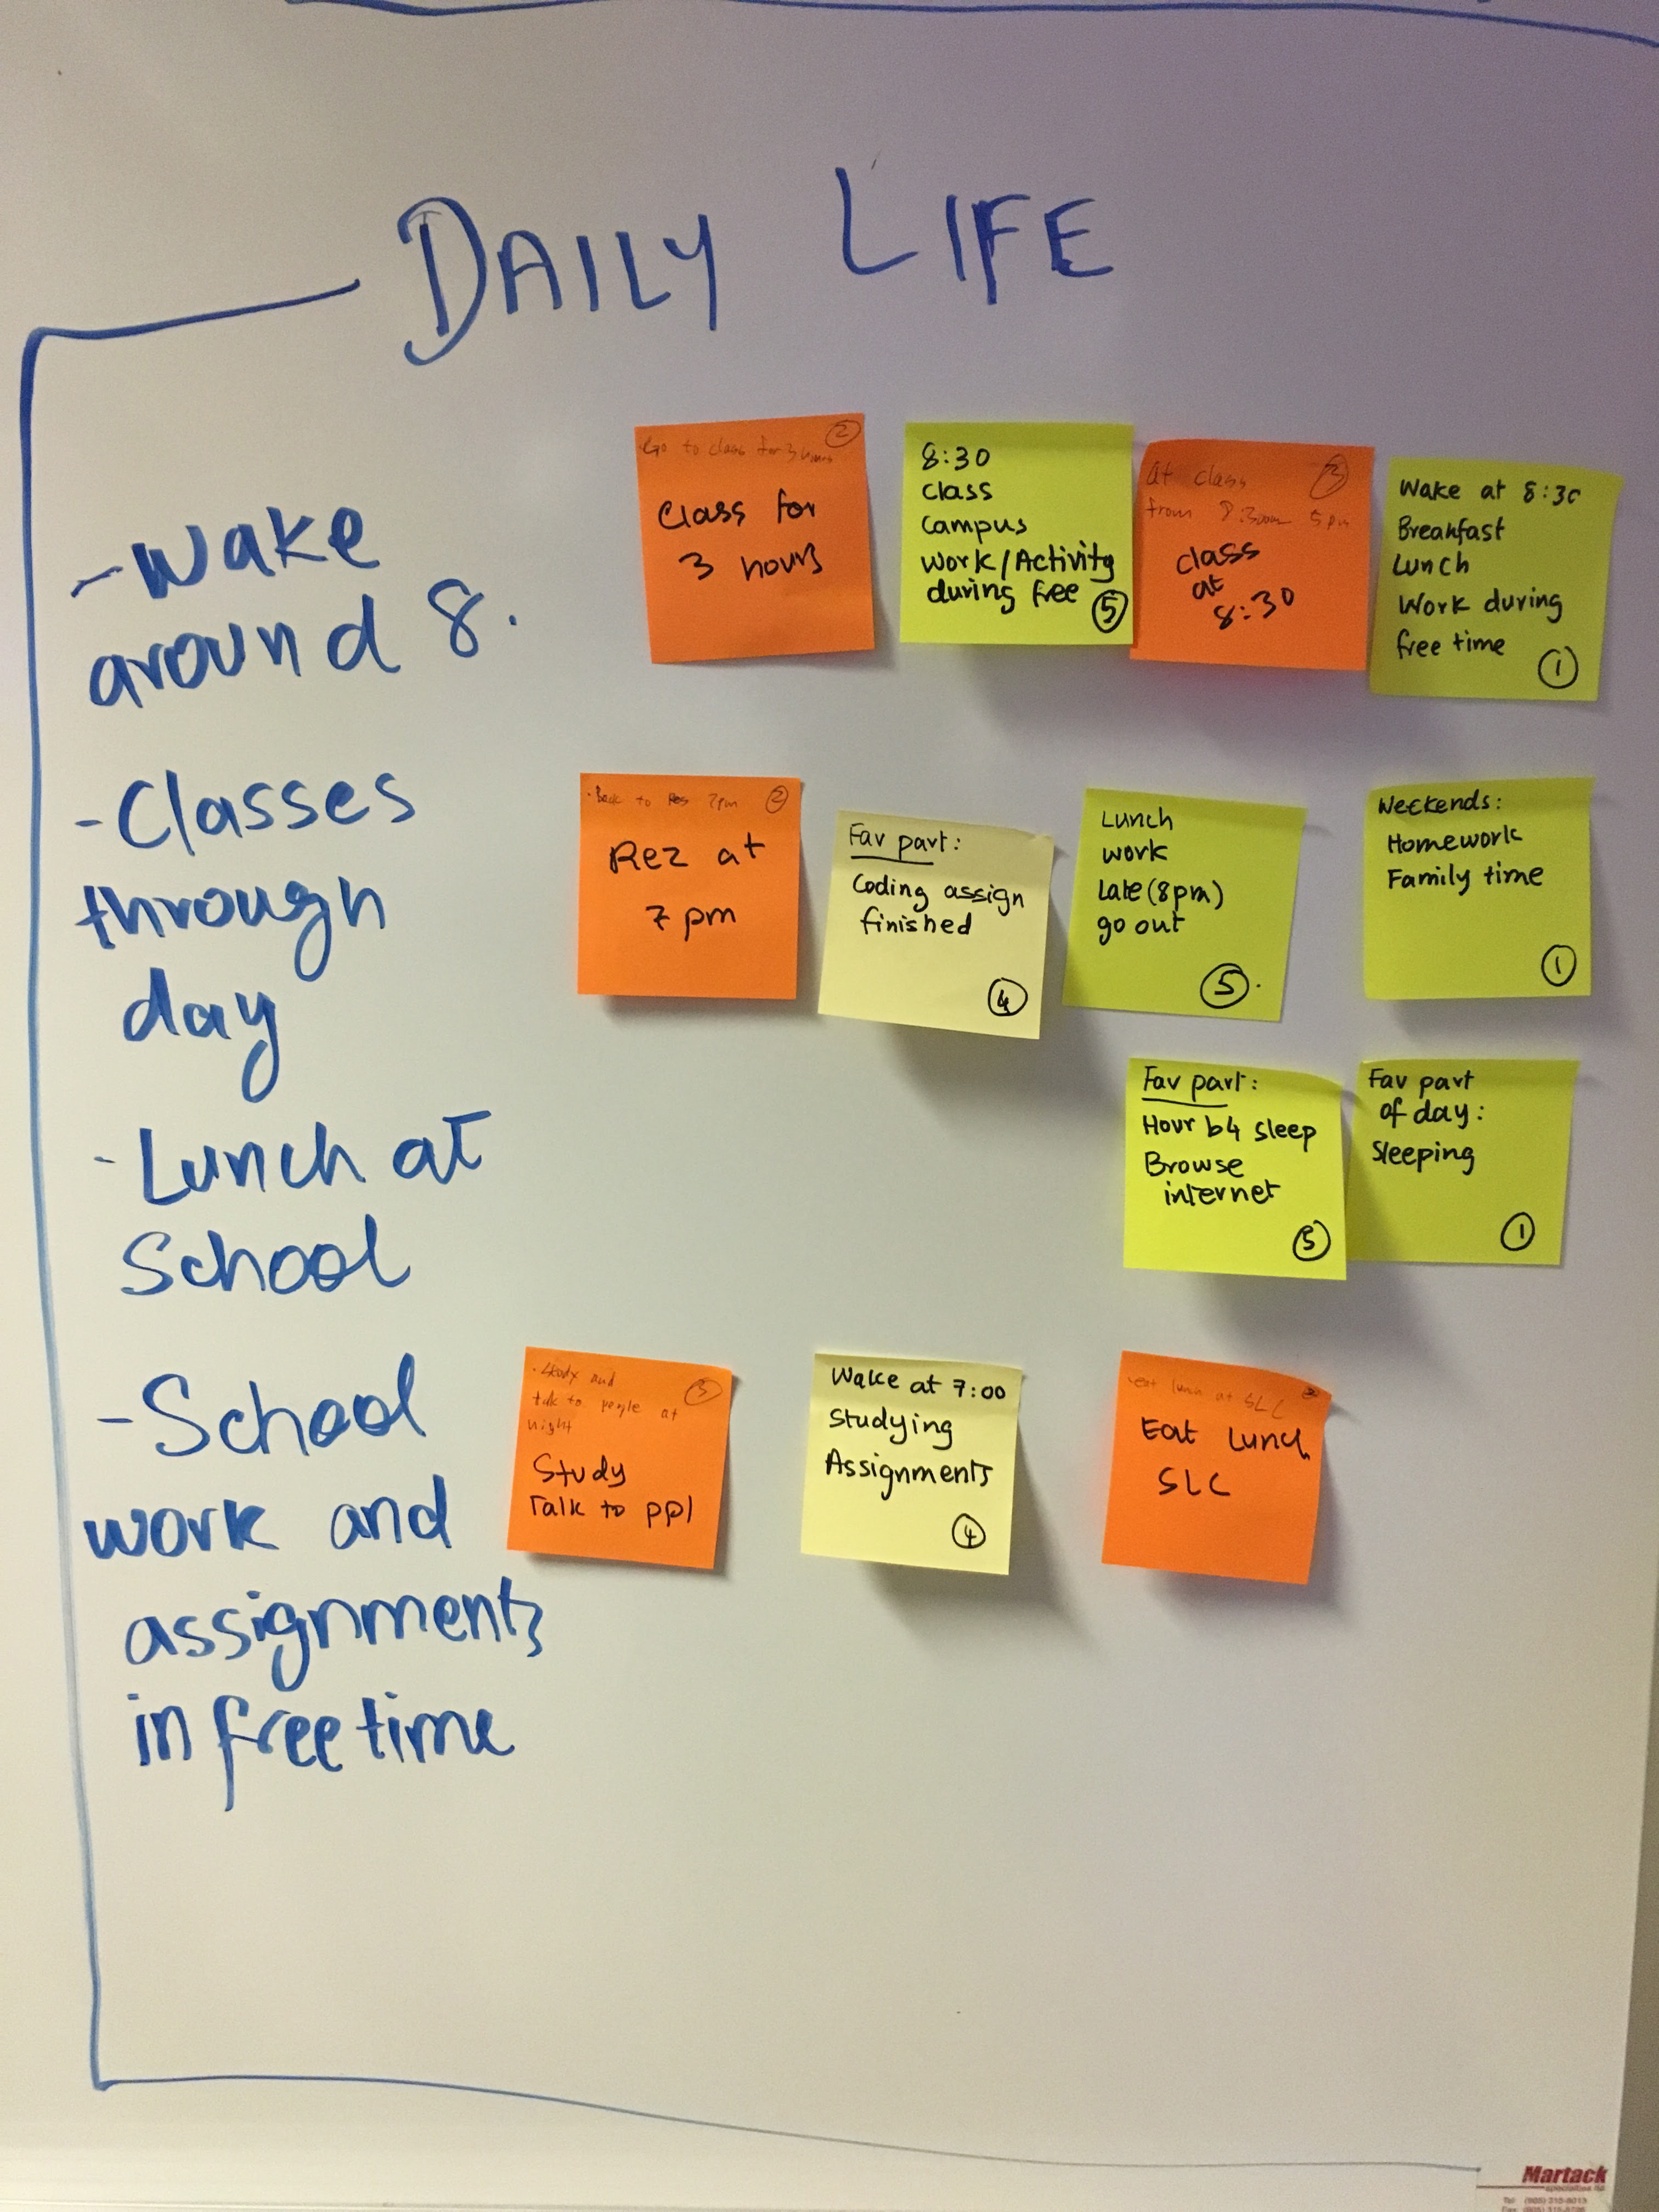 DAILY LIFE
-Wake
around 8.
-Classes
through
day
-Lunch at
School
-School
work and
assignments
in free time
Go to class for 3 hours ②
Class for
3 hours
8:30
Class
Campus
Work/Activity
during free ⑤
At class ③
from 8:30am 5pm
class
at
8:30
Wake at 8:30
Breakfast
Lunch
Work during
free time
①
·Back to Res 7pm ②
Rez at
7 pm
Fav part:
Coding assign
finished
④
Lunch
work
Late (8pm)
go out
⑤
Weekends:
Homework
Family time
①
Fav part:
Hour b4 sleep
Browse
internet
⑤
Fav part
of day:
Sleeping
①
·Study and
talk to people at
night
③
Study
Talk to ppl
Wake at 7:00
Studying
Assignments
④
·eat lunch at SLC
Eat Lunch
SLC
Martack